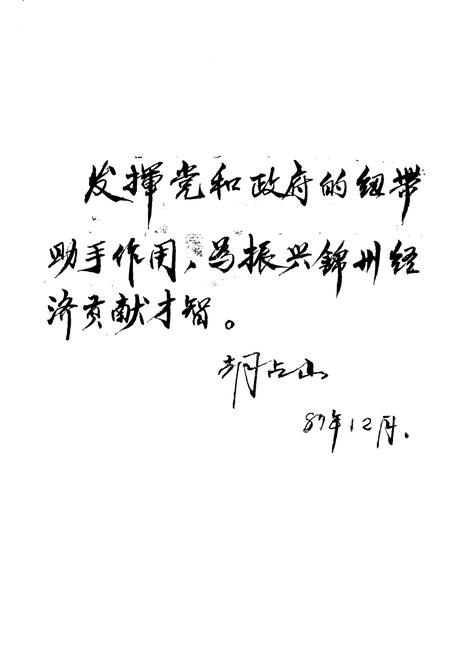 发揮党和政府的纽带
助手作用，为振兴錦州经
济贡献才智。
胡占山
87年12月.